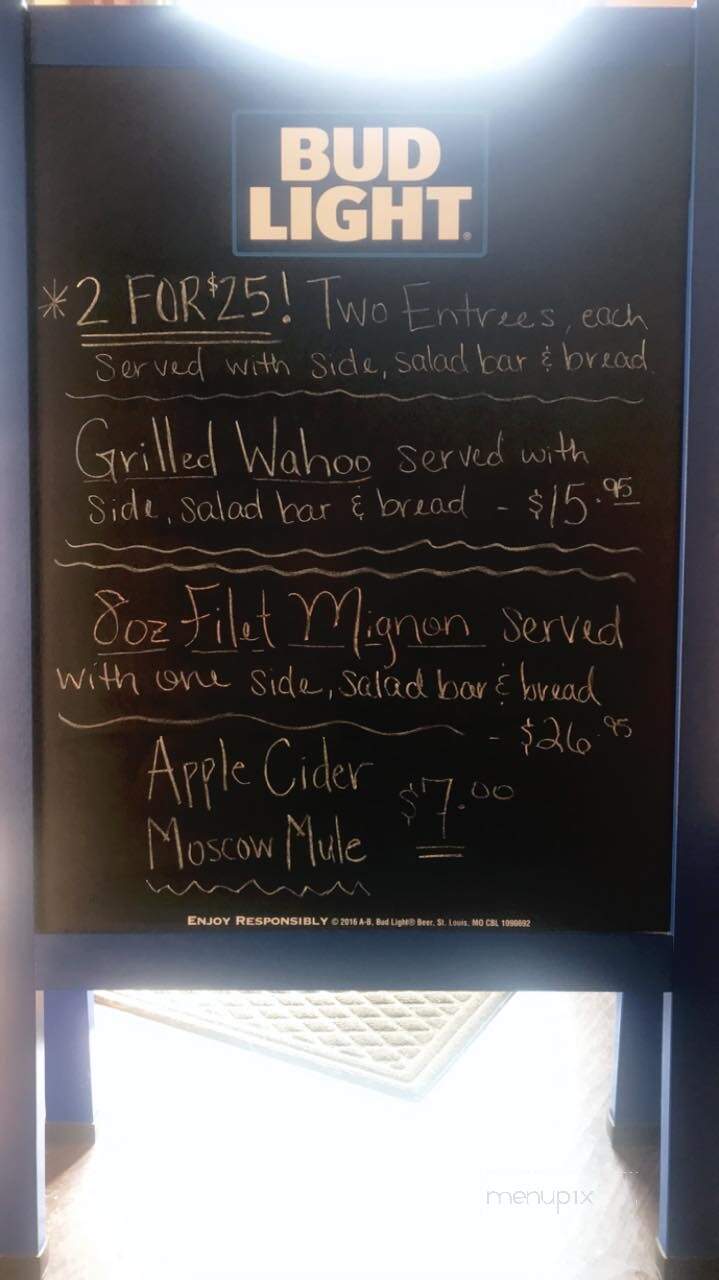 BUD
LIGHT®
*2 FOR $25! Two Entrees, each
served with side, salad bar & bread
Grilled Wahoo served with
side, salad bar & bread - $15.95
8oz Filet Mignon served
with one side, salad bar & bread
- $26.95
Apple Cider
$7.00
Moscow Mule
ENJOY RESPONSIBLY © 2016 A-B, Bud Light® Beer, St. Louis, MO CBL 1099692
menupix